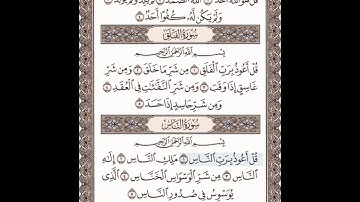 قُلْ هُوَ ٱللَّهُ أَحَدٌ ۝١ ٱللَّهُ ٱلصَّمَدُ ۝٢ لَمْ يَلِدْ وَلَمْ يُولَدْ ۝٣
وَلَمْ يَكُن لَّهُۥ كُفُوًا أَحَدٌۢ ۝٤
سُورَةُ الْفَلَقِ
بِسْمِ ٱللَّهِ ٱلرَّحْمَٰنِ ٱلرَّحِيمِ
قُلْ أَعُوذُ بِرَبِّ ٱلْفَلَقِ ۝١ مِن شَرِّ مَا خَلَقَ ۝٢ وَمِن شَرِّ
غَاسِقٍ إِذَا وَقَبَ ۝٣ وَمِن شَرِّ ٱلنَّفَّٰثَٰتِ فِى ٱلْعُقَدِ ۝٤
وَمِن شَرِّ حَاسِدٍ إِذَا حَسَدَ ۝٥
سُورَةُ النَّاسِ
بِسْمِ ٱللَّهِ ٱلرَّحْمَٰنِ ٱلرَّحِيمِ
قُلْ أَعُوذُ بِرَبِّ ٱلنَّاسِ ۝١ مَلِكِ ٱلنَّاسِ ۝٢ إِلَٰهِ
ٱلنَّاسِ ۝٣ مِن شَرِّ ٱلْوَسْوَاسِ ٱلْخَنَّاسِ ۝٤ ٱلَّذِى
يُوَسْوِسُ فِى صُدُورِ ٱلنَّاسِ ۝٥